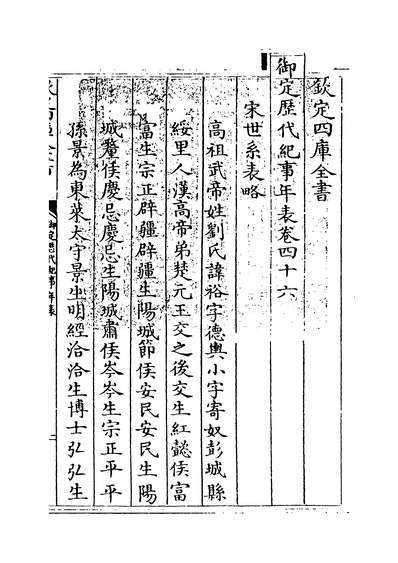 欽定四庫全書
御定歷代紀事年表卷四十六
宋世系表略
高祖武帝姓劉氏諱裕字德輿小字寄奴彭城縣
綏里人漢高帝弟楚元王交之後交生紅懿侯富
富生宗正辟疆辟疆生陽城節侯安民安民生陽
城釐侯慶忌慶忌生陽城肅侯岑岑生宗正平平
孫景為東萊太守景生明經洽洽生博士弘弘生
御定歷代紀事年表